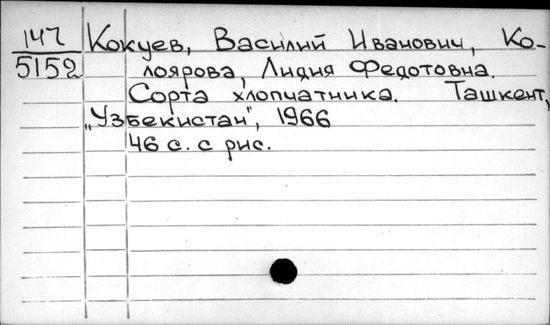 147
5152
Кокуев, Василий Иванович, Ко-
лоярова, Лидия Федотовна.
Сорта хлопчатника. Ташкент,
„Узбекистан", 1966
46 с. с рис.